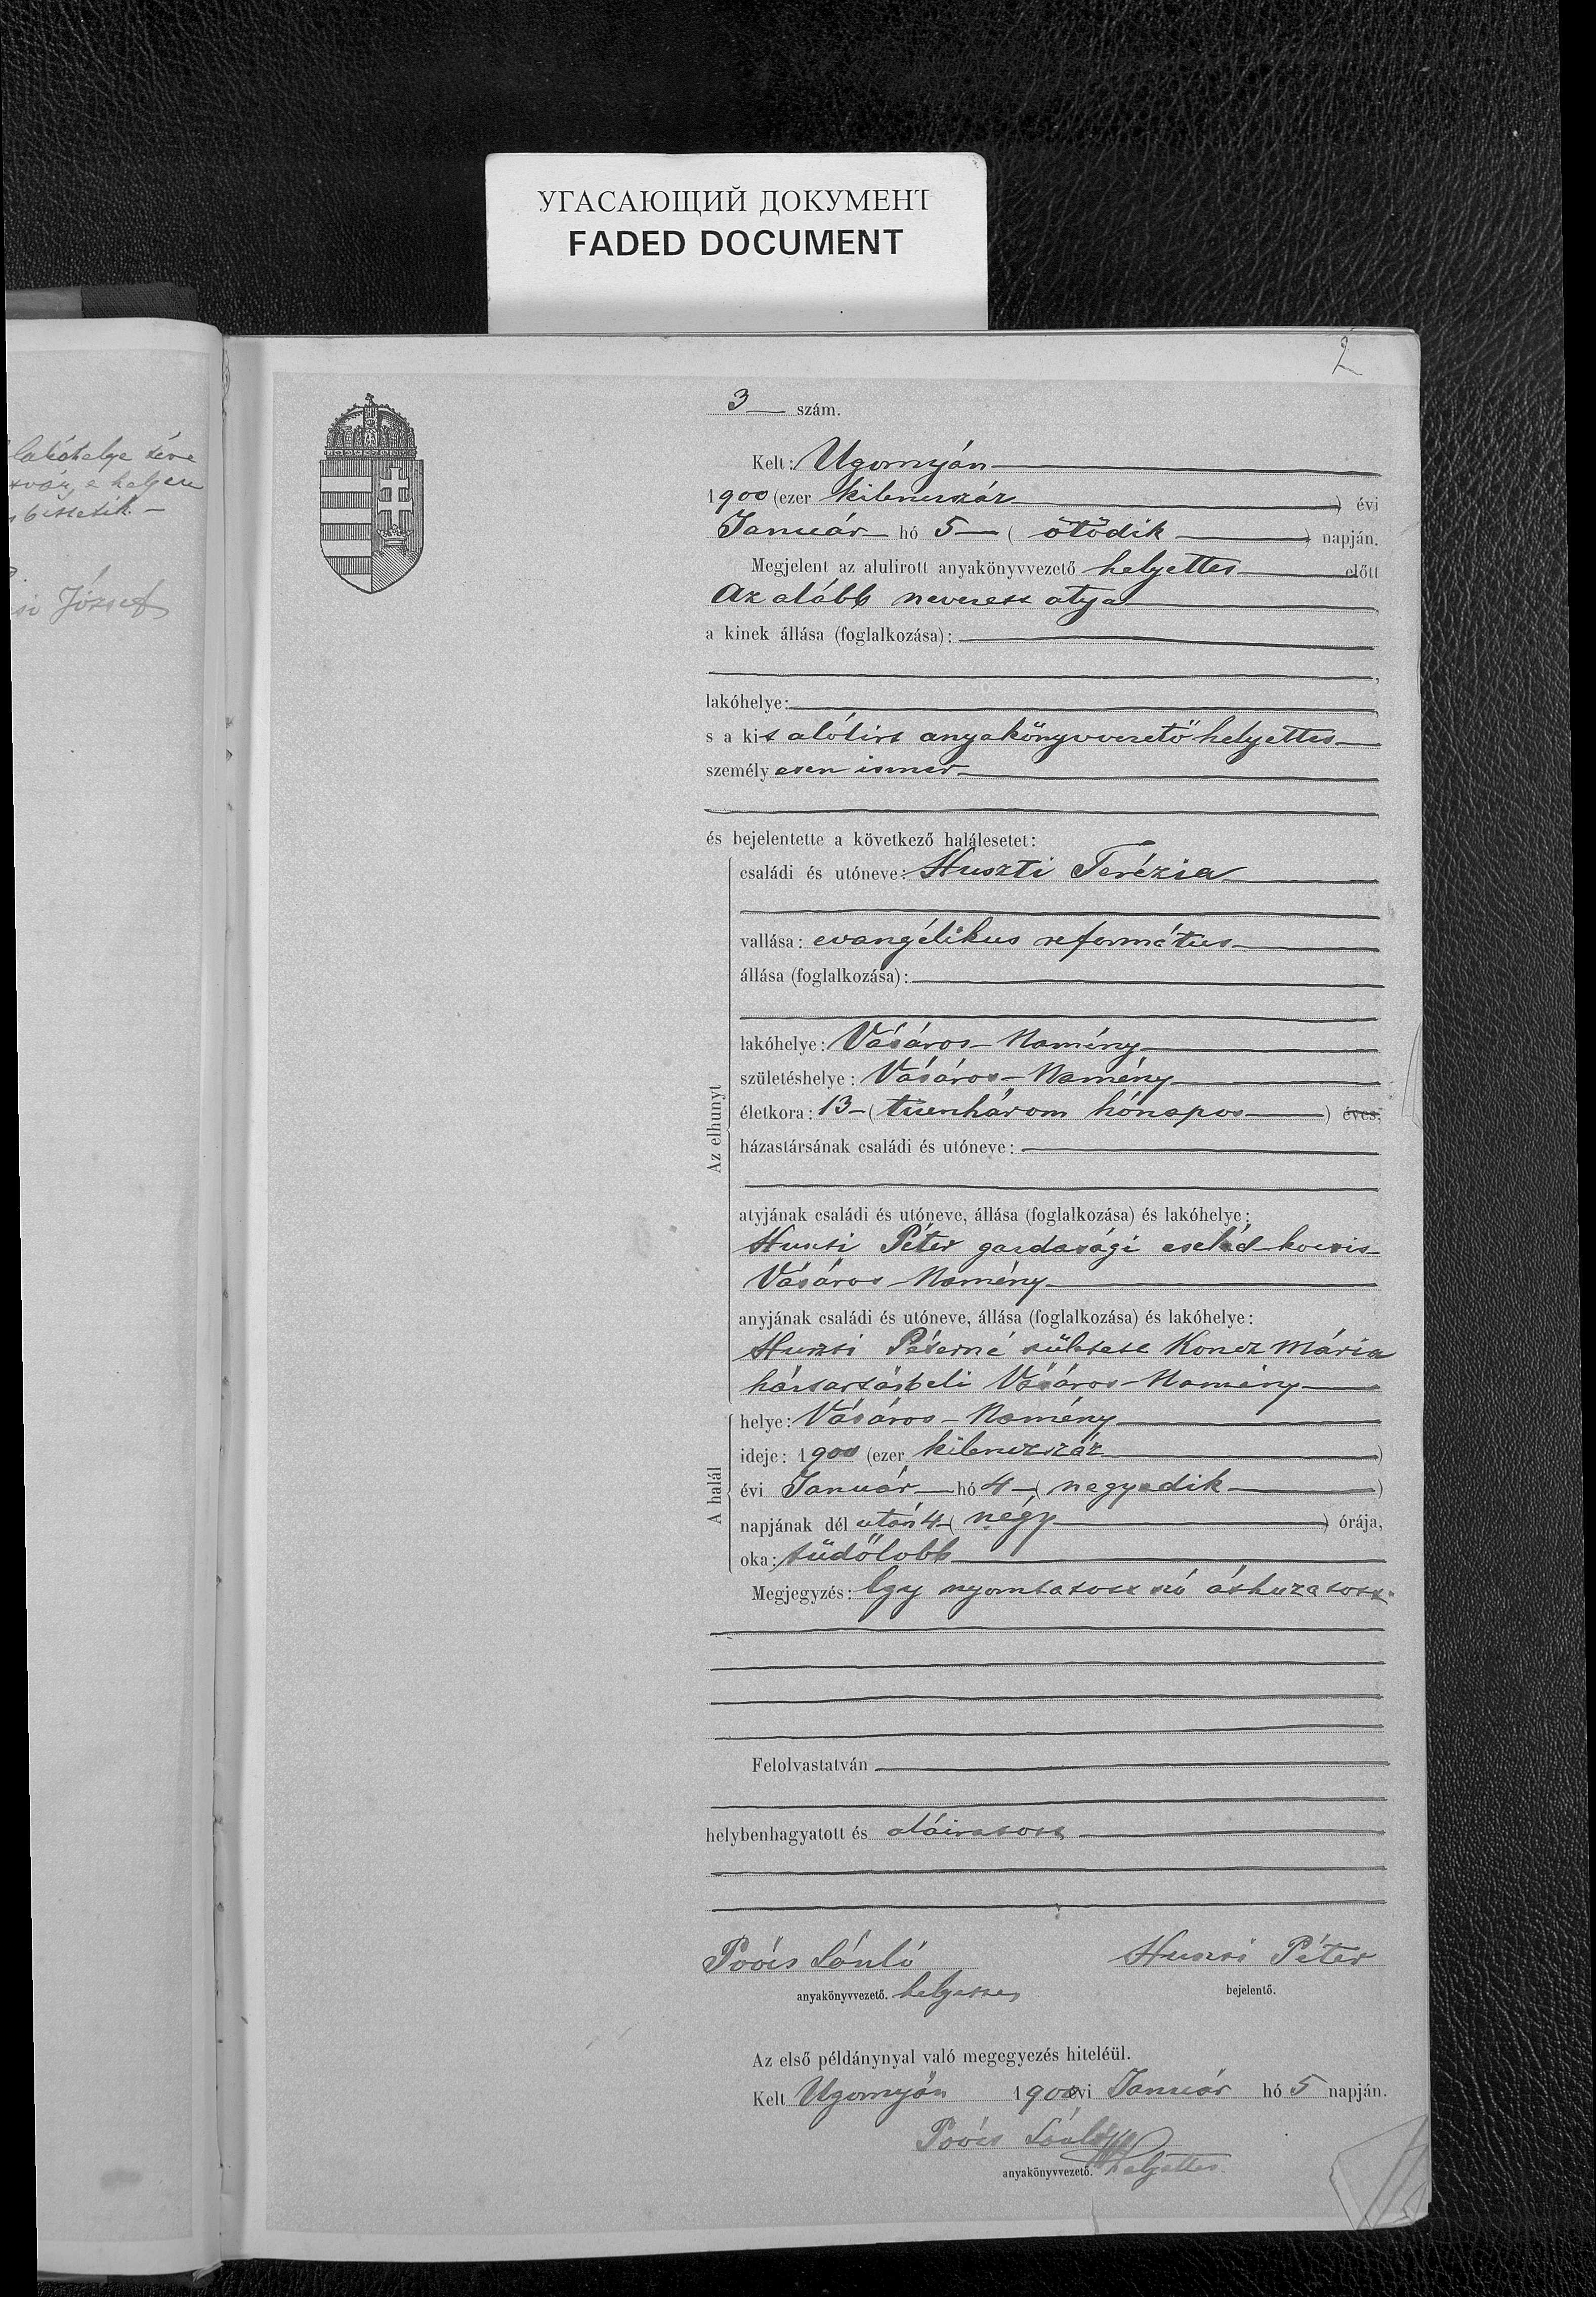 УГАСАЮЩИЙ ДОКУМЕНТ
FADED DOCUMENT
2
lakóhelye téve
a helyen
József
3 — szám.
Kelt: Ugornyán
1900 (ezer kilenczszáz) évi
Január hó 5 — (ötödik) napján.
Megjelent az alulirott anyakönyvvezető helyettes előtt
Az alább nevezett atya,
a kinek állása (foglalkozása):
lakóhelye:
s a kit alólirt anyakönyvvezető helyettes
személyesen ismer
és bejelentette a következő halálesetet:
Az elhunyt
családi és utóneve: Huszti Terézia
vallása: evangélikus református
állása (foglalkozása):
lakóhelye: Vásáros-Namény
születéshelye: Vásáros-Namény
életkora: 13 — (tizenhárom hónapos) éves,
házastársának családi és utóneve:
atyjának családi és utóneve, állása (foglalkozása) és lakóhelye:
Huszti Péter gazdasági cseléd kocsis
Vásáros-Namény
anyjának családi és utóneve, állása (foglalkozása) és lakóhelye:
Huszti Péterné született Koncz Mária
háztartásbeli Vásáros-Namény
A halál
helye: Vásáros-Namény
ideje: 1900 (ezer kilenczszáz)
évi Január hó 4 — (negyedik)
napjának dél után 4 (négy) órája,
oka: tüdőlobb
Megjegyzés: Egy nyomtatott szó áthuzatott.
Felolvastatván
helybenhagyatott és aláiratott
Huszti Péter
anyakönyvvezető. helyettes
bejelentő.
Az első példánynyal való megegyezés hiteléül.
Kelt Ugornyán 1900 évi Január hó 5 napján.
anyakönyvvezető. helyettes